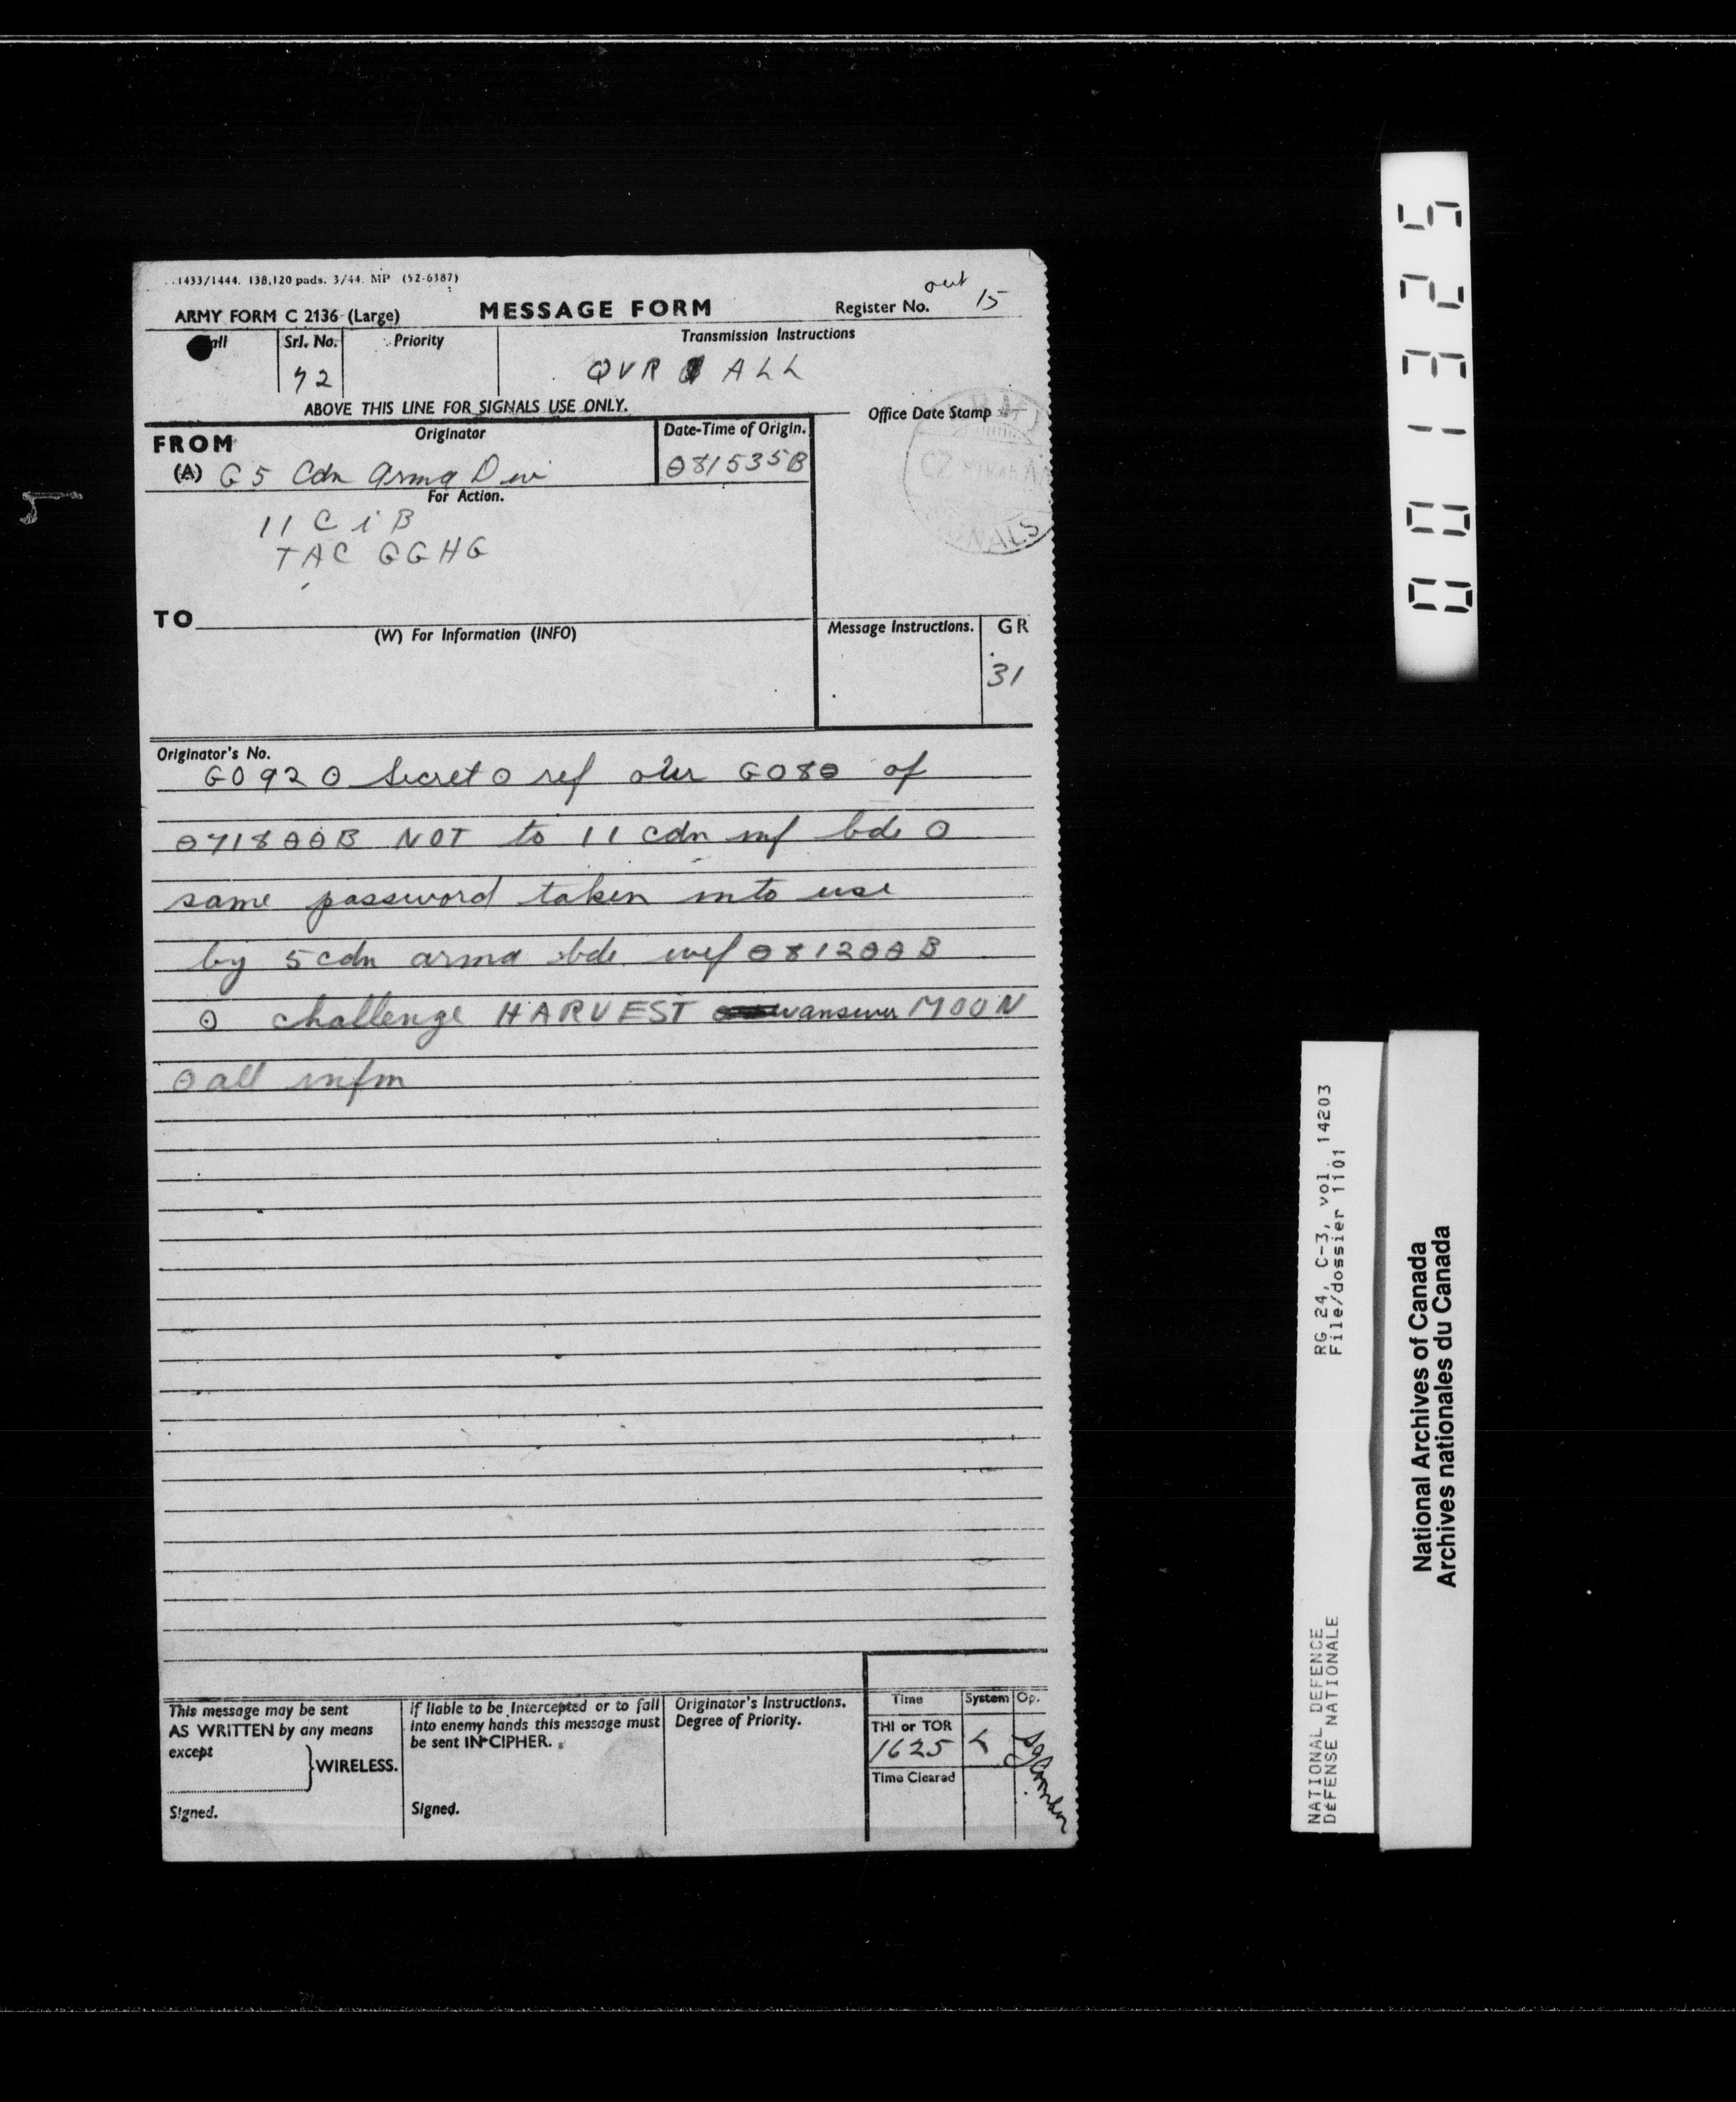 1433/1444. 138,120 pads. 3/44. MP (52-6387)
ARMY FORM C 2136 (Large) MESSAGE FORM Register No. out 15
all Srl. No. Priority Transmission Instructions
72 QVR ALL
ABOVE THIS LINE FOR SIGNALS USE ONLY.
Office Date Stamp
FROM Originator Date-Time of Origin.
(A) G 5 Cdn armd Div 081535B
For Action.
11 C i B
TAC GGHG
NALS
TO
(W) For Information (INFO)
Message Instructions. GR
31
Originator's No.
GO92 O Secret O ref our GO80 of
071800B NOT to 11 cdn inf bde O
same password taken into use
by 5 cdn armd bde wef 081200B
O challenge HARVEST answer MOON
O all infm
This message may be sent
AS WRITTEN by any means
except
WIRELESS.
Signed.
If liable to be intercepted or to fall
into enemy hands this message must
be sent IN CIPHER.
Signed.
Originator's Instructions.
Degree of Priority.
Time System Op.
THI or TOR
1625 L
Time Cleared
001325
RG 24, C-3, vol. 14203
File/dossier 1101
NATIONAL DEFENCE
DÉFENSE NATIONALE
National Archives of Canada
Archives nationales du Canada